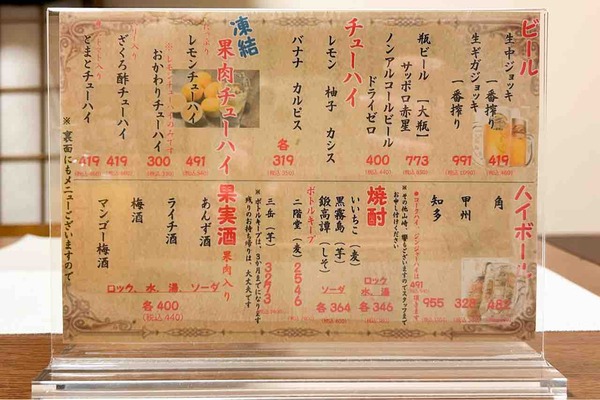 ビール
生中ジョッキ
一番搾り
419
生ギガジョッキ
一番搾り
991
瓶ビール [大瓶]
サッポロ赤星
773
ノンアルコールビール
ドライゼロ
400
チューハイ
レモン 柚子 カシス
バナナ カルピス
各
319
凍結
果肉チューハイ
レモンチューハイ
491
おかわりチューハイ
300
ざくろ酢チューハイ
419
とまとチューハイ
419
※裏面にもメニューございますので
ハイボール
角
甲州
知多
955
焼酎
いいちこ(麦)
黒霧島(芋)
ロック
水、湯
各346
鍛高譚(しそ)
ソーダ
各364
ボトルキープ
二階堂(麦)
2546
三岳(芋)
3273
※ボトルキープは、3か月までになります
残りのお持ち帰りは、大丈夫です
果実酒 果肉入り
あんず酒
ライチ酒
梅酒
マンゴー梅酒
ロック、水、湯 ソーダ
各400
(税込440)